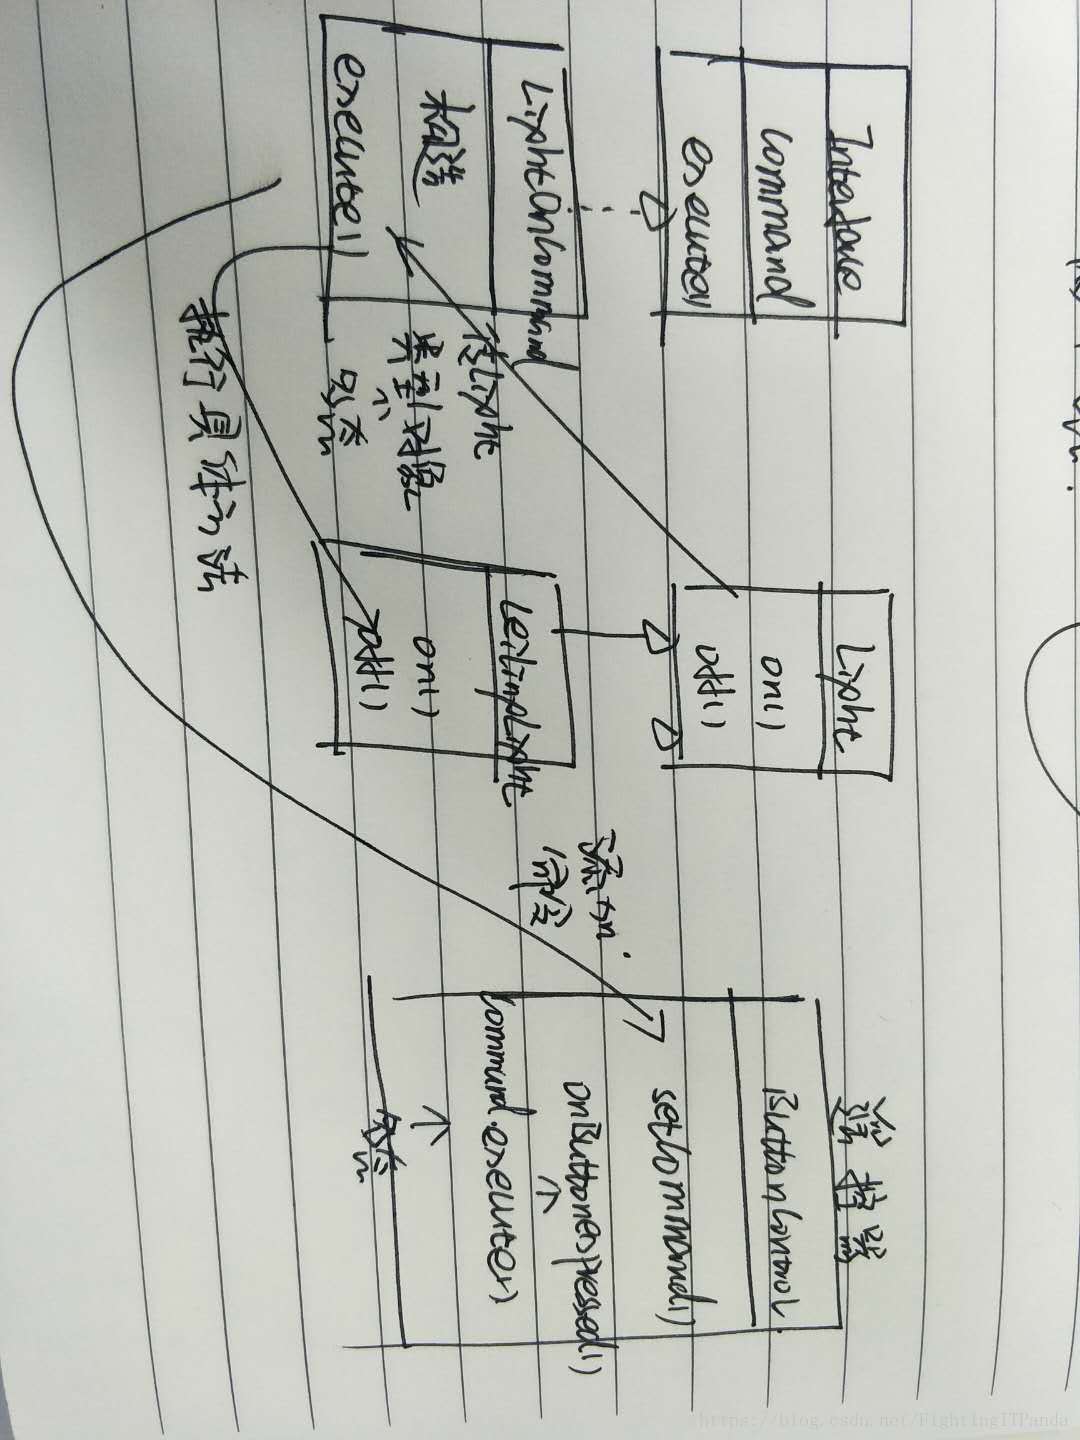 Interface
Command
execute()
Light
on()
off()
遥控器
ButtonControl
setCommand()
onButtonespressed()
Command.execute()
多态
LightOnCommand
构造
execute()
传Light
类型对象
多态
CeilingLight
on()
off()
添加
命令
执行具体方法